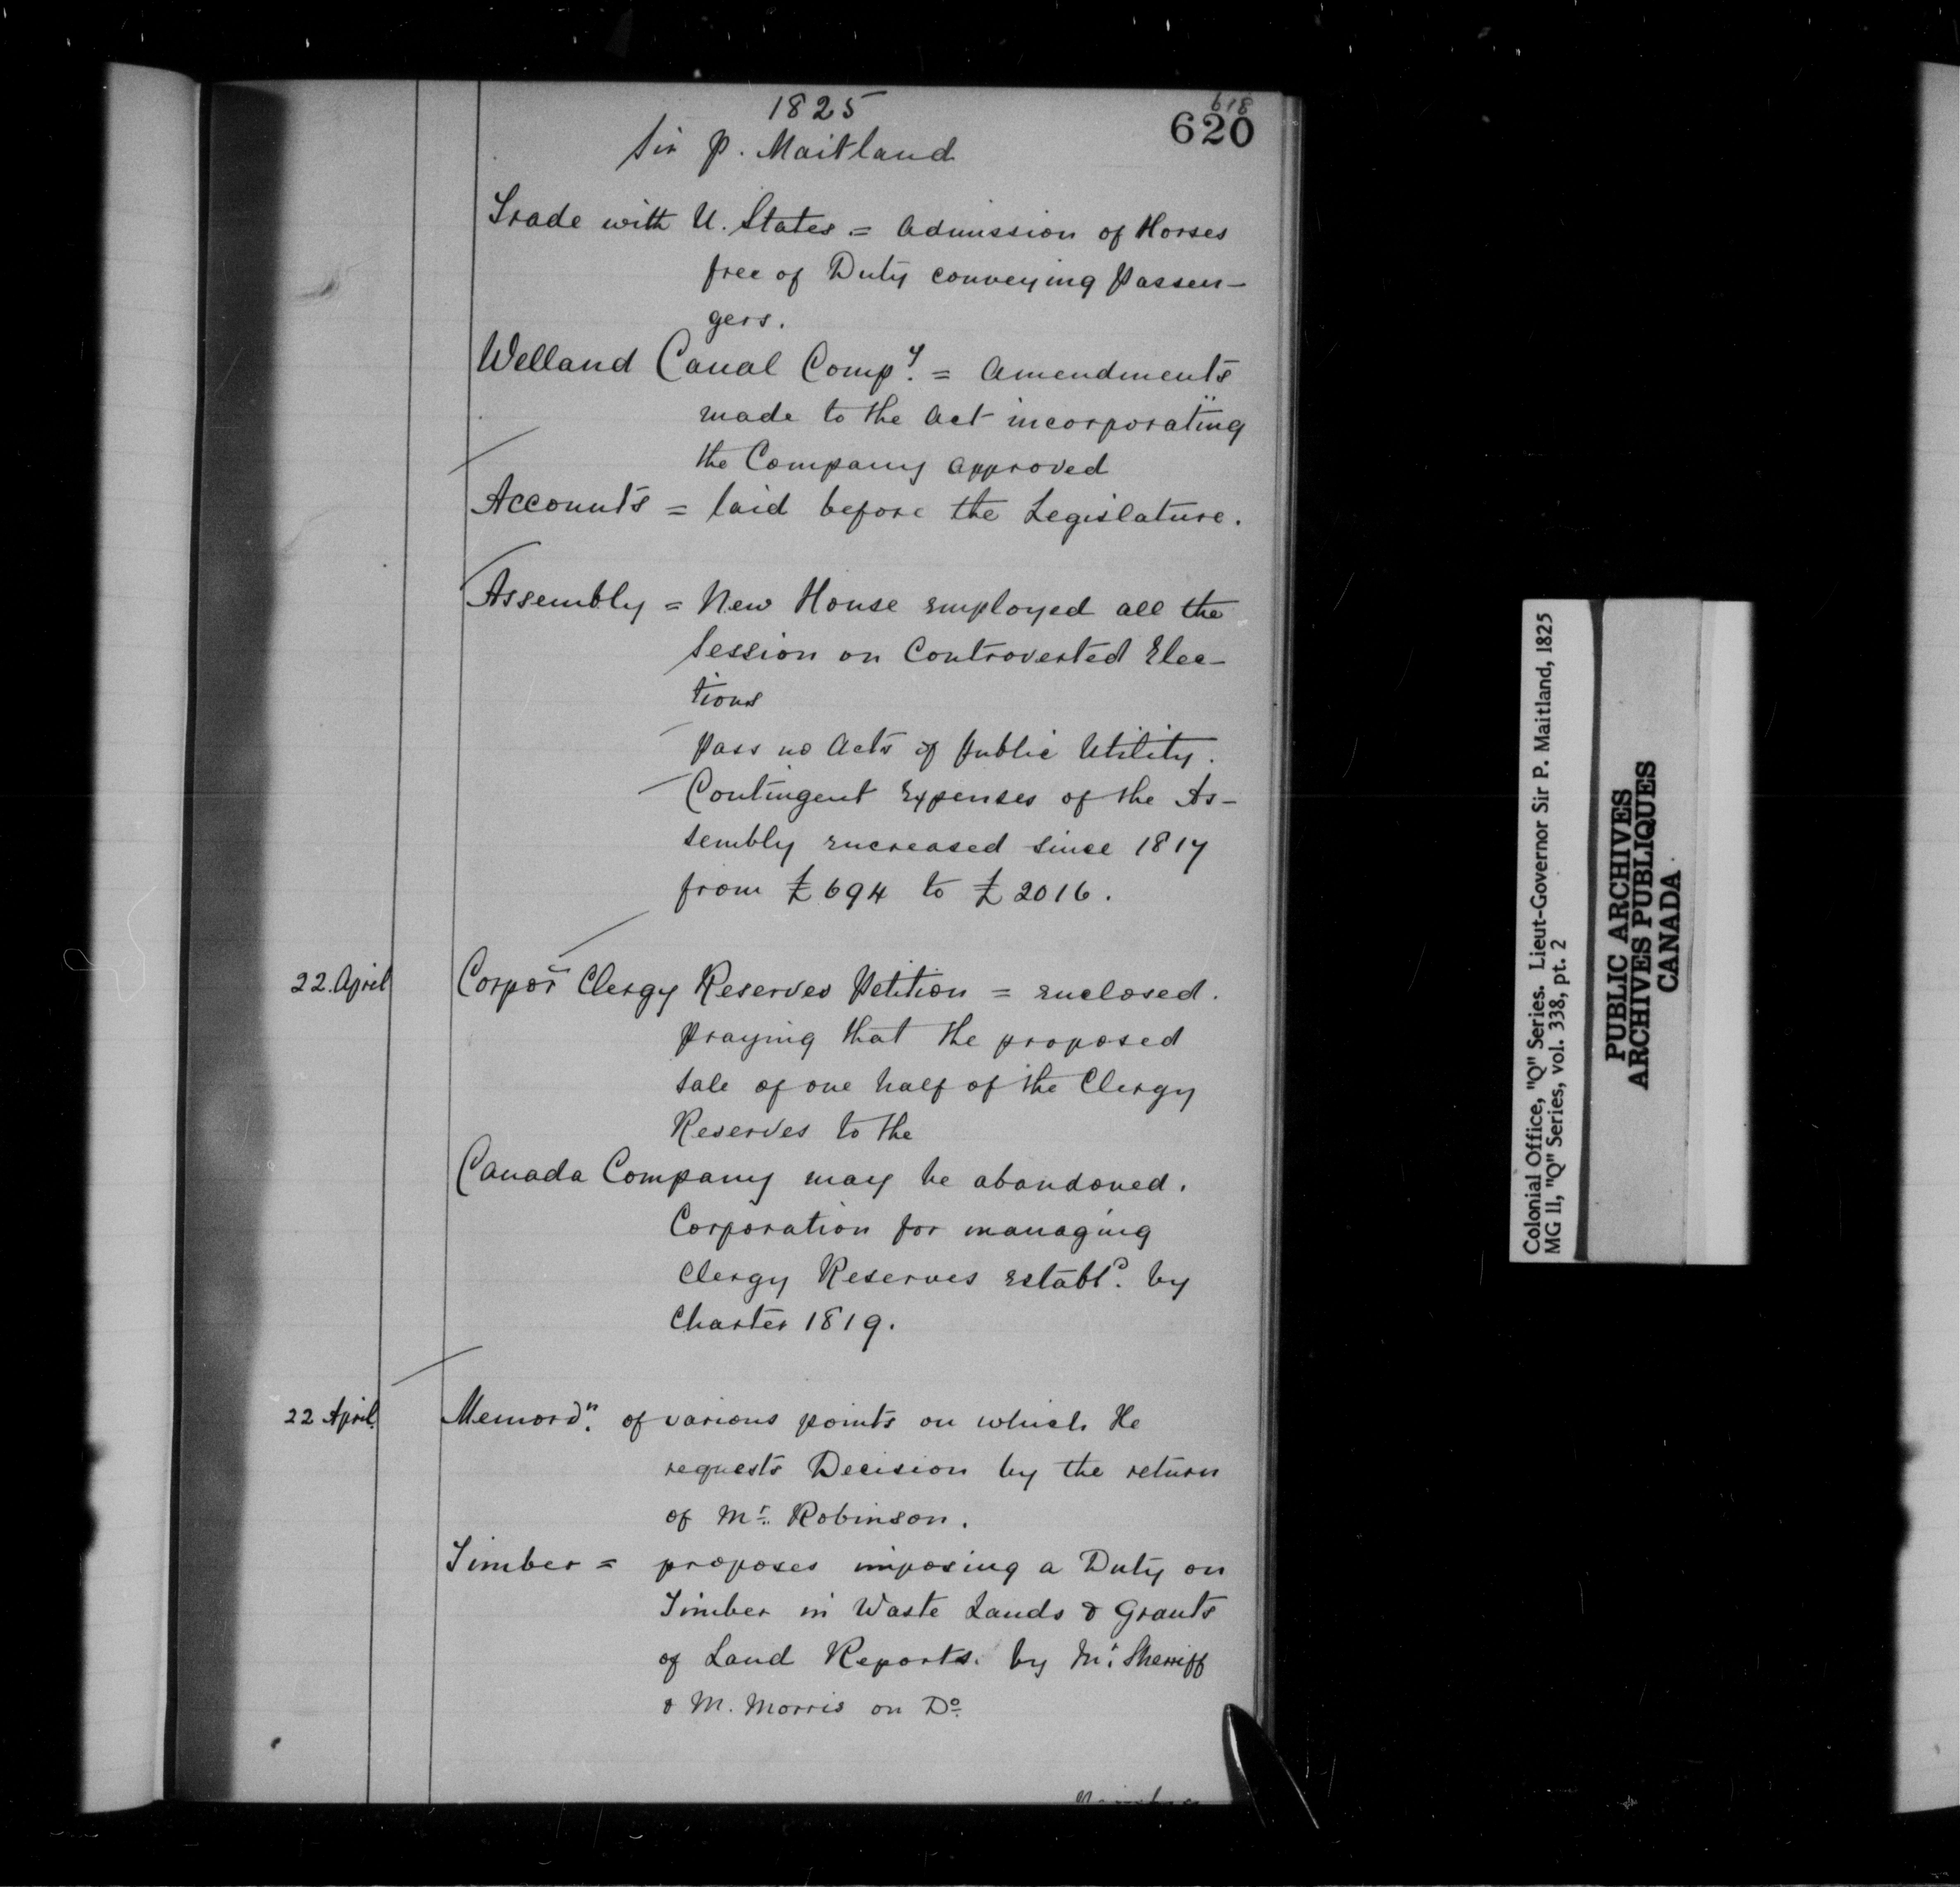 618
1825
620
Sir P. Maitland
Trade with U. States = Admission of Horses
free of Duty conveying Passen-
gers.
Welland Canal Compy. = Amendments
made to the Act incorporating
the Company approved
Accounts = laid before the Legislature.
Assembly = New House employed all the
Session on Controverted Elec-
tions
Pass no Acts of Public Utility.
Contingent Expenses of the As-
sembly encreased since 1817
from £694 to £2016.
22. April
Corporn Clergy Reserves Petition = enclosed.
Praying that the proposed
Sale of one half of the Clergy
Reserves to the
Canada Company may be abandoned.
Corporation for managing
Clergy Reserves establd. by
Charter 1819.
22 April.
Memordn. of various points on which He
requests Decision by the return
of Mr. Robinson.
Timber = proposes imposing a Duty on
Timber in Waste Lands & Grants
of Land Reports. by Mr. Sherriff
& M. Morris on Do.
Colonial Office, "Q" Series. Lieut-Governor Sir P. Maitland, 1825
MG II, "Q" Series, vol. 338, pt. 2
PUBLIC ARCHIVES
ARCHIVES PUBLIQUES
CANADA